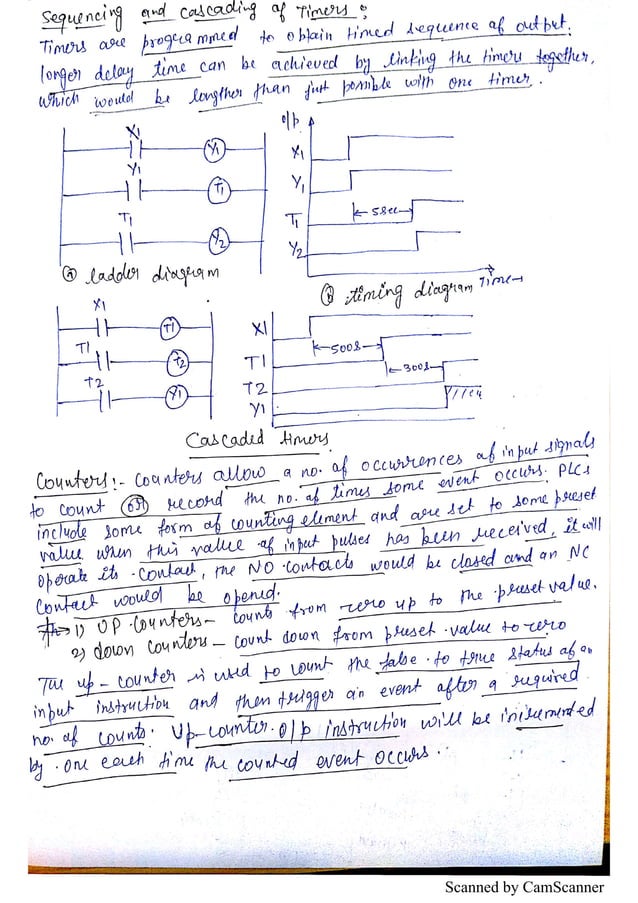 Sequencing and cascading of Timers:
Timers are programmed to obtain timed sequence of output.
longer delay time can be achieved by linking the timers together,
which would be longther than just possible with one timer.
X1
Y1
Y1
T1
T1
Y2
ⓐ ladder diagram
o/p
X1
Y1
5sec
T1
Y2
Time→
ⓑ timing diagram
X1
T1
T1
T2
T2
Y1
X1
500s
T1
300s
T2
Y1
Cascaded timers
Counters:- Counters allow a no. of occurrences of input signals
to count (or) record the no. of times some event occurs. PLCs
include some form of counting element and are set to some preset
value when this value of input pulses has been received, it will
operate its contact, the NO contacts would be closed and an NC
contact would be opened.
1) UP counters – counts from zero up to the preset value.
2) down counters – count down from preset value to zero
The up-counter is used to count the false to true status of an
input instruction and then trigger an event after a required
no. of counts. Up-counter o/p instruction will be incremented
by one each time the counted event occurs.
Scanned by CamScanner